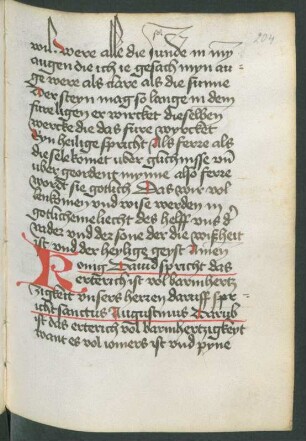 204
wil were alle die sunde in my
augen die ich ie gesach myn au
ge were als clare als die sunne
Der steyn mag so lange in dem
fure ligen er wircket die selben
wercke die das fure wyrcket
Eyn heilige spricht Als ferre als
die sele komet uber glichnisse vn
uber geordent mynne also ferre
wordt sie gotlich Das wir vol
kenkomen vnd wise werden in
gotlicheme liecht des helff vns d
vader vnd der sone der die wißheit
ist vnd der heylige geyst Amen
Konig Dauid spricht das
erterich ist vol barmhertz
zigkeit vnsers herren daruff spr
icht sanctus Augustinus Darub
ist das erterich vol barmhertzigkeyt
want es vol iomers ist vnd pyne